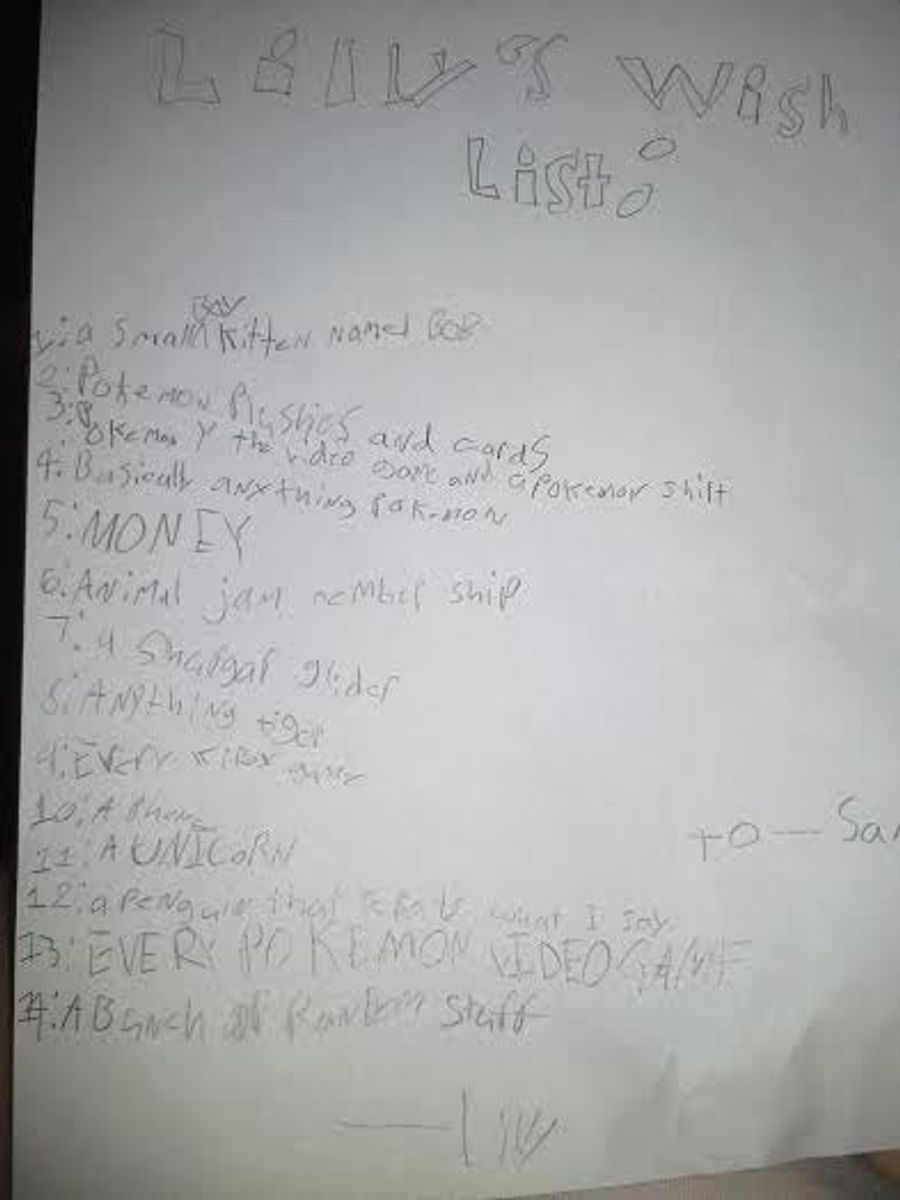 Lily's Wish
List:
BOY
1: a small kitten named BOB
2: Pokemon Plushies and cards
3: Pokemon Y the video game and a Pokemon shirt
4: Basically anything Pokemon
5: MONEY
6: Animal jam member ship
7: a Shurgar glider
8: Anything tiger
9: EVERY Kirby game
10: A Phone
11: A UNICORN
12: a Penguin that what I say
to — Sa
13: EVERY POKEMON VIDEO GAME
14: A Bunch of Random Stuff
— Lily